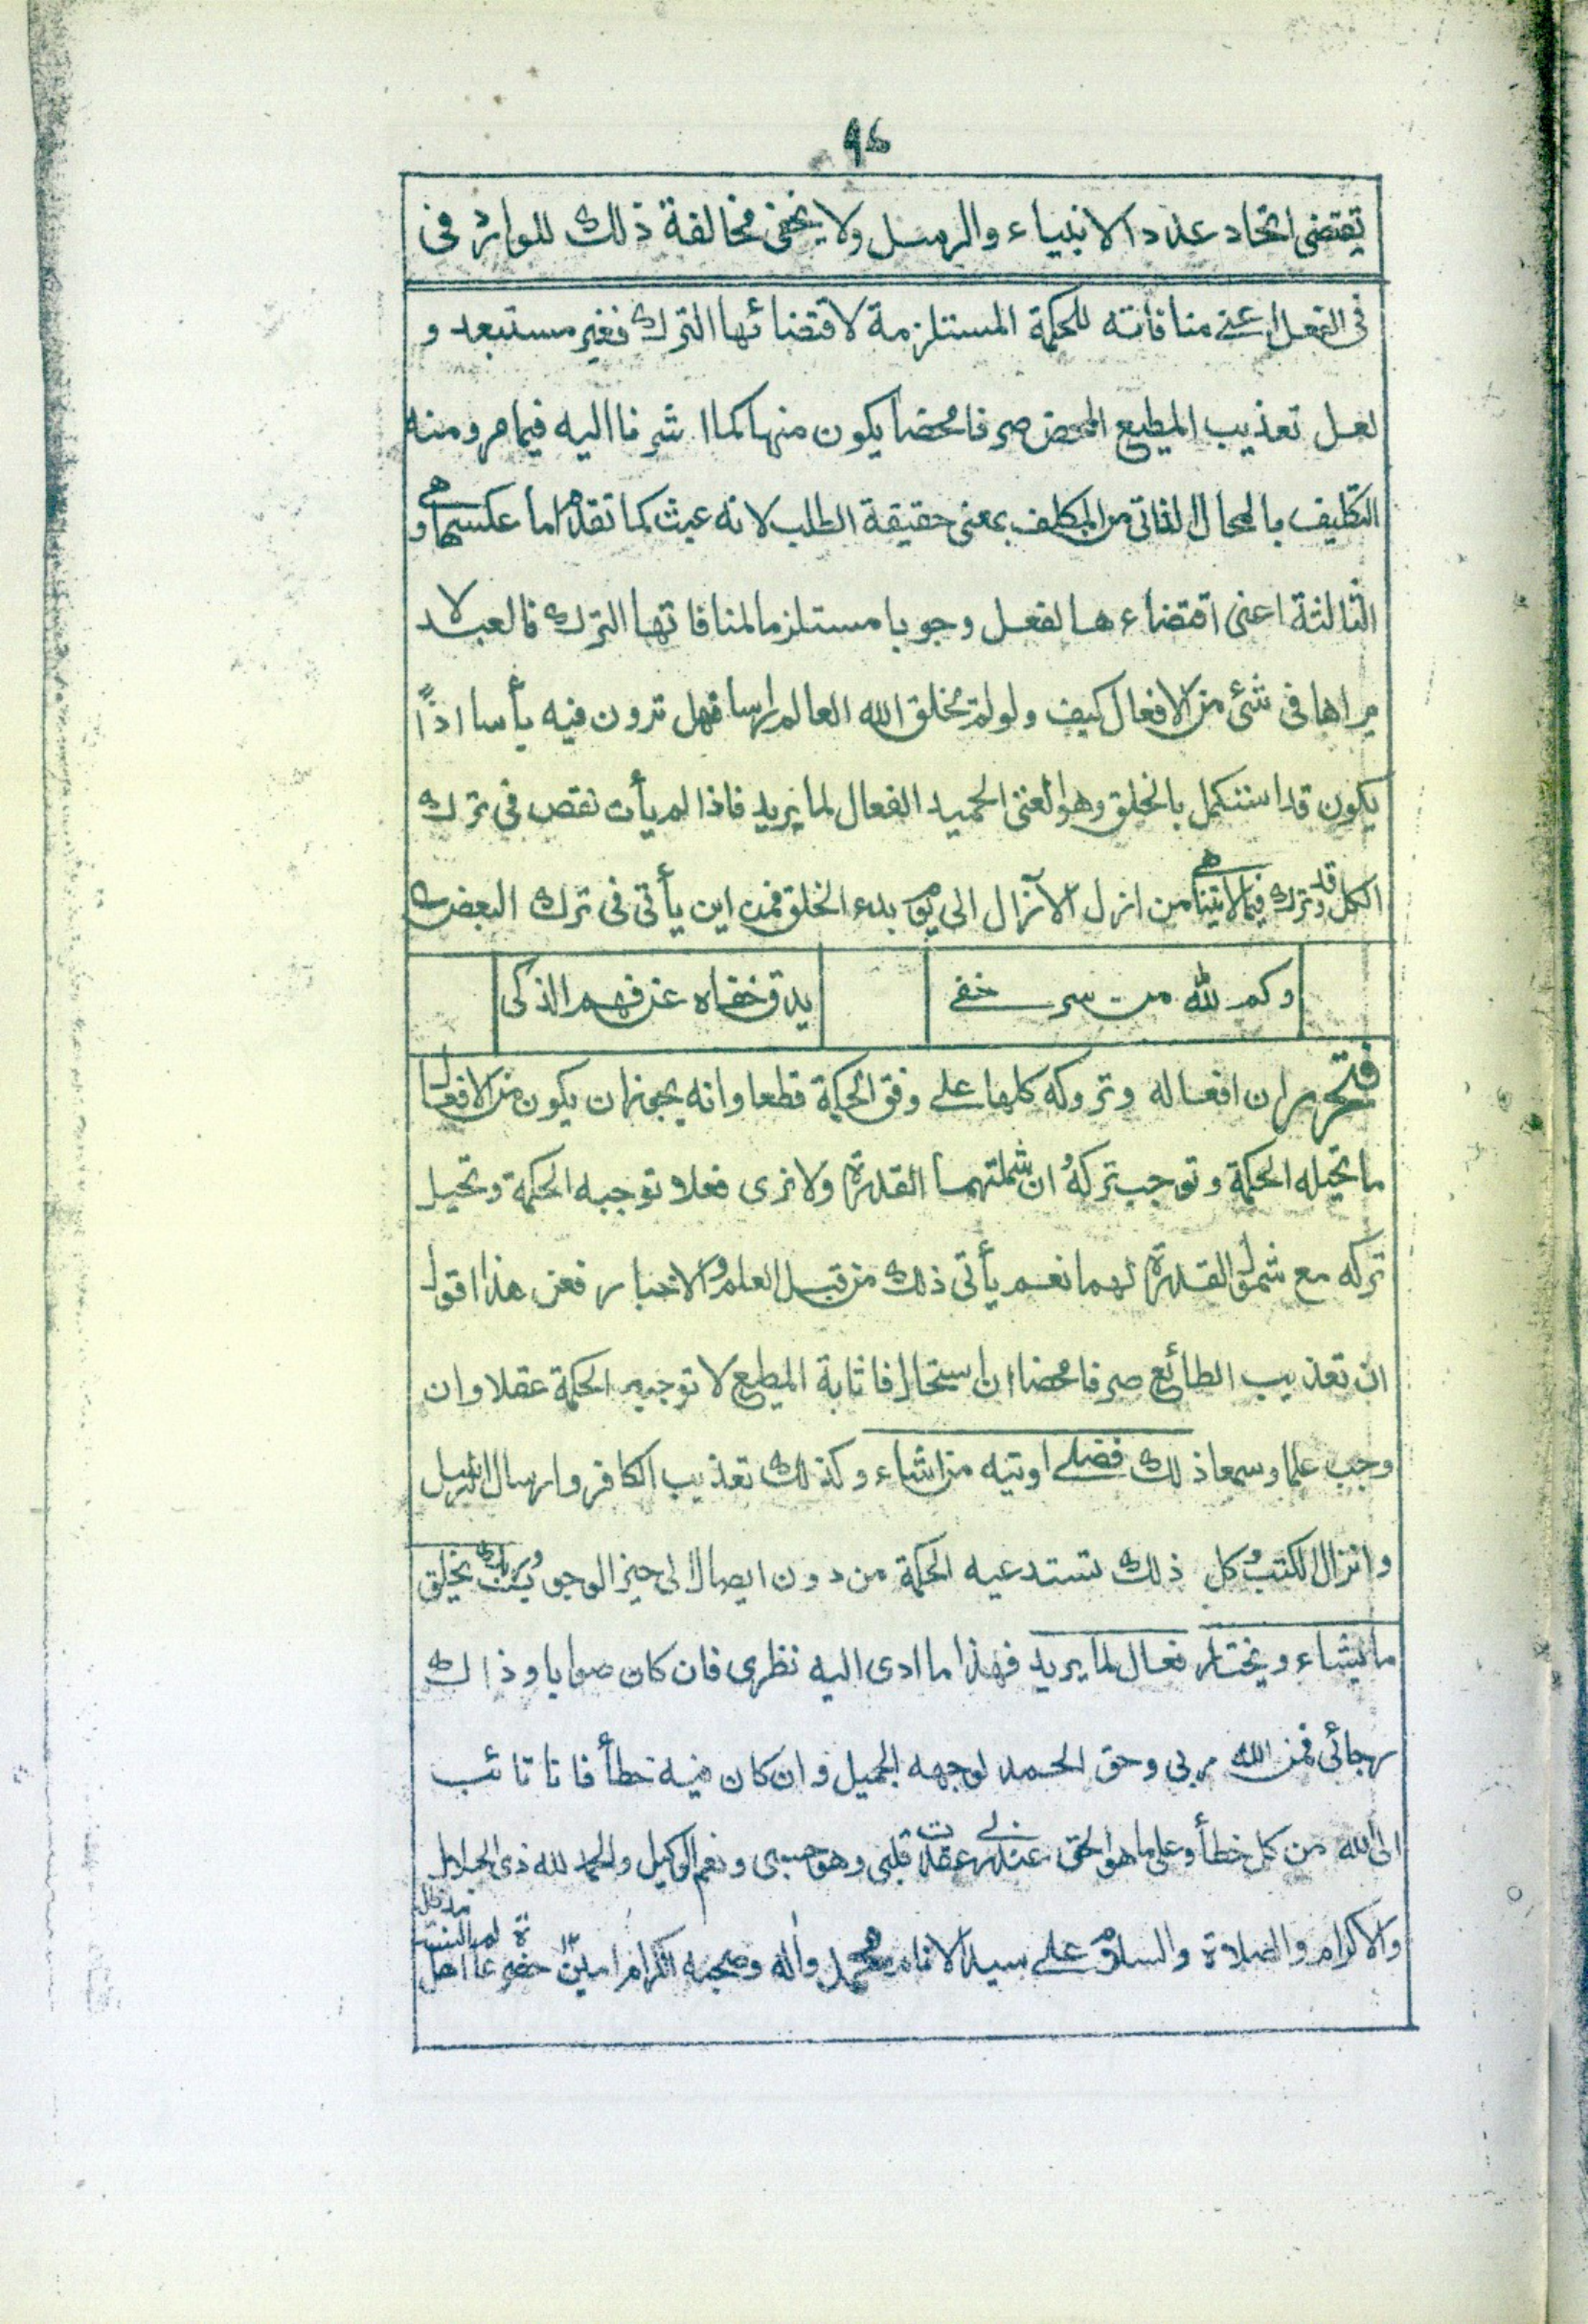 ٩٤
تقتضى اتحاد عدد الانبياء والرسل ولا يخفى مخالفة ذلك للوارد فى
فى الفعل اعنى منافاته للحكمة المستلزمة لاقتضائها الترك فغير مستبعد و
لعل تعذيب المطيع المحض صرفا محضا يكون منها كما اشرنا اليه فيما مر ومنه
التكليف بالمحال الذاتى من المكلف بمعنى حقيقة الطلب لانه عبث كما تقدم اما عكسها و هى
الثالثة اعنى اقتضاءها لفعل وجوبا مستلزما لمنافاتها الترك فالعبد لا
يراها فى شئ من الافعال كيف ولو لم يخلق الله العالم راسا فهل ترون فيه بأسا اذاً
يكون قد استكمل بالخلق وهو الغنى الحميد الفعال لما يريد فاذا لم يأت نقص فى ترك
الكل وقد ترك فيما لايتناهى من ازل الآزال الى يوم بدء الخلق فمن اين يأتى فى ترك البعض
وكم لله من سر خفى
يدق خفاه عن فهم الذكى
فتحرر ان افعاله وتروكه كلها على وفق الحكمة قطعا وانه يجوز ان يكون من الافعال
ما تحيله الحكمة وتوجب تركهُ ان شملتهما القدرة ولا نرى فعلا توجبه الحكمة وتحيل
تركه مع شمول القدرة لهما نعم يأتى ذلك من قبل العلم والاخبار فعن هذا اقول
ان تعذيب الطائع صرفا محضا ان استحال فاثابة المطيع لا توجبه الحكمة عقلا وان
وجب علما وسمعا ذلك فضلى اوتيه من اشاء وكذلك تعذيب الكافر وارسال الرسل
وانزال الكتب وكل ذلك تستدعيه الحكمة من دون ايصال الى حيز الوجوب وربك يخلق
ما يشاء ويختار فعال لما يريد فهذا ما ادى اليه نظرى فان كان صوابا وذاك
رجائى فمن الله ربى وحق الحمد لوجهه الجميل وان كان فيه خطأ فانا تائب
الى الله من كل خطأ وعلى ما هو الحق عند ربى عقدت قلبى وهو حسبى ونعم الوكيل والحمد لله ذى الجلال
والاكرام والصلاة والسلام على سيد الانام محمد واٰله وصحبه الكرام امين حضرة